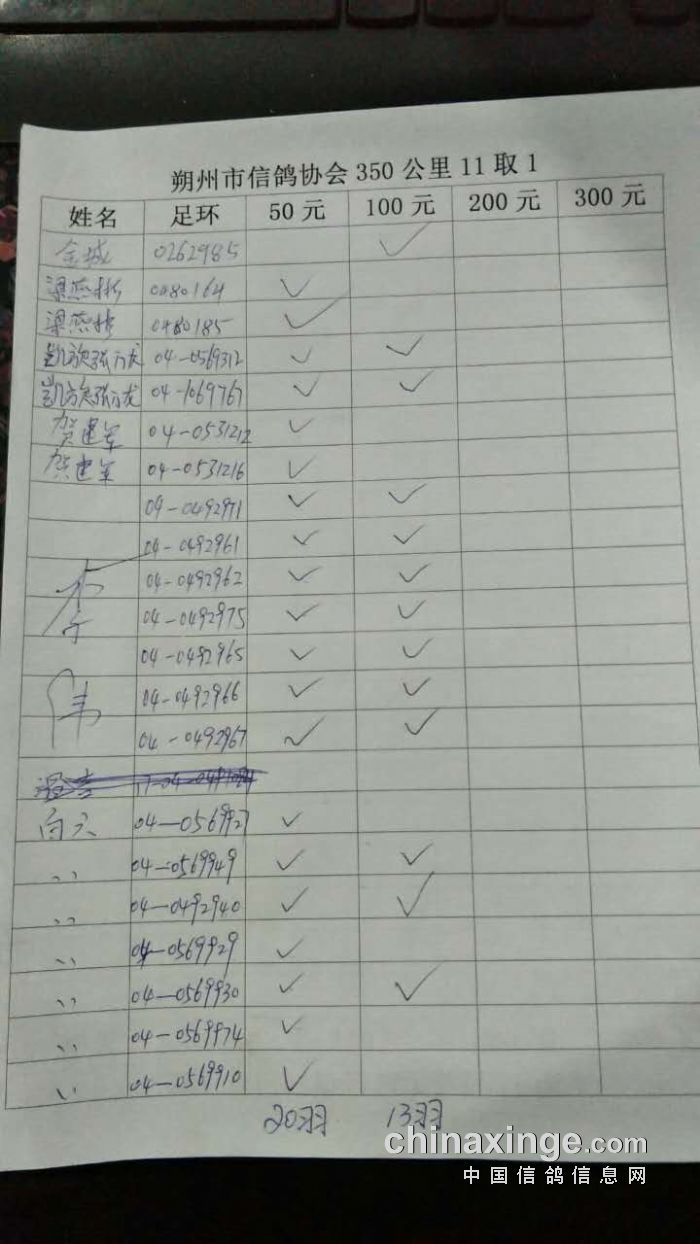 朔州市信鸽协会 350 公里 11 取 1
姓名 足环 50 元 100 元 200 元 300 元
金城 0262985 ✓
梁燕彬 0480164 ✓
梁燕彬 0480185 ✓
凯旋张万龙 04-0569312 ✓ ✓
凯旋张万龙 04-1069767 ✓ ✓
贺建军 04-0531212 ✓
贺建军 04-0531216 ✓
04-0492971 ✓ ✓
04-0492961 ✓ ✓
04-0492962 ✓ ✓
李 04-0492975 ✓ ✓
04-0492965 ✓ ✓
伟 04-0492966 ✓ ✓
04-0492967 ✓ ✓
向天 04-0569927 ✓
〃 04-0569949 ✓ ✓
〃 04-0492940 ✓ ✓
〃 04-0569929 ✓
〃 04-0569930 ✓ ✓
〃 04-0569974 ✓
〃 04-0569910 ✓
20羽 13羽
chinaxinge.com
中国信鸽信息网